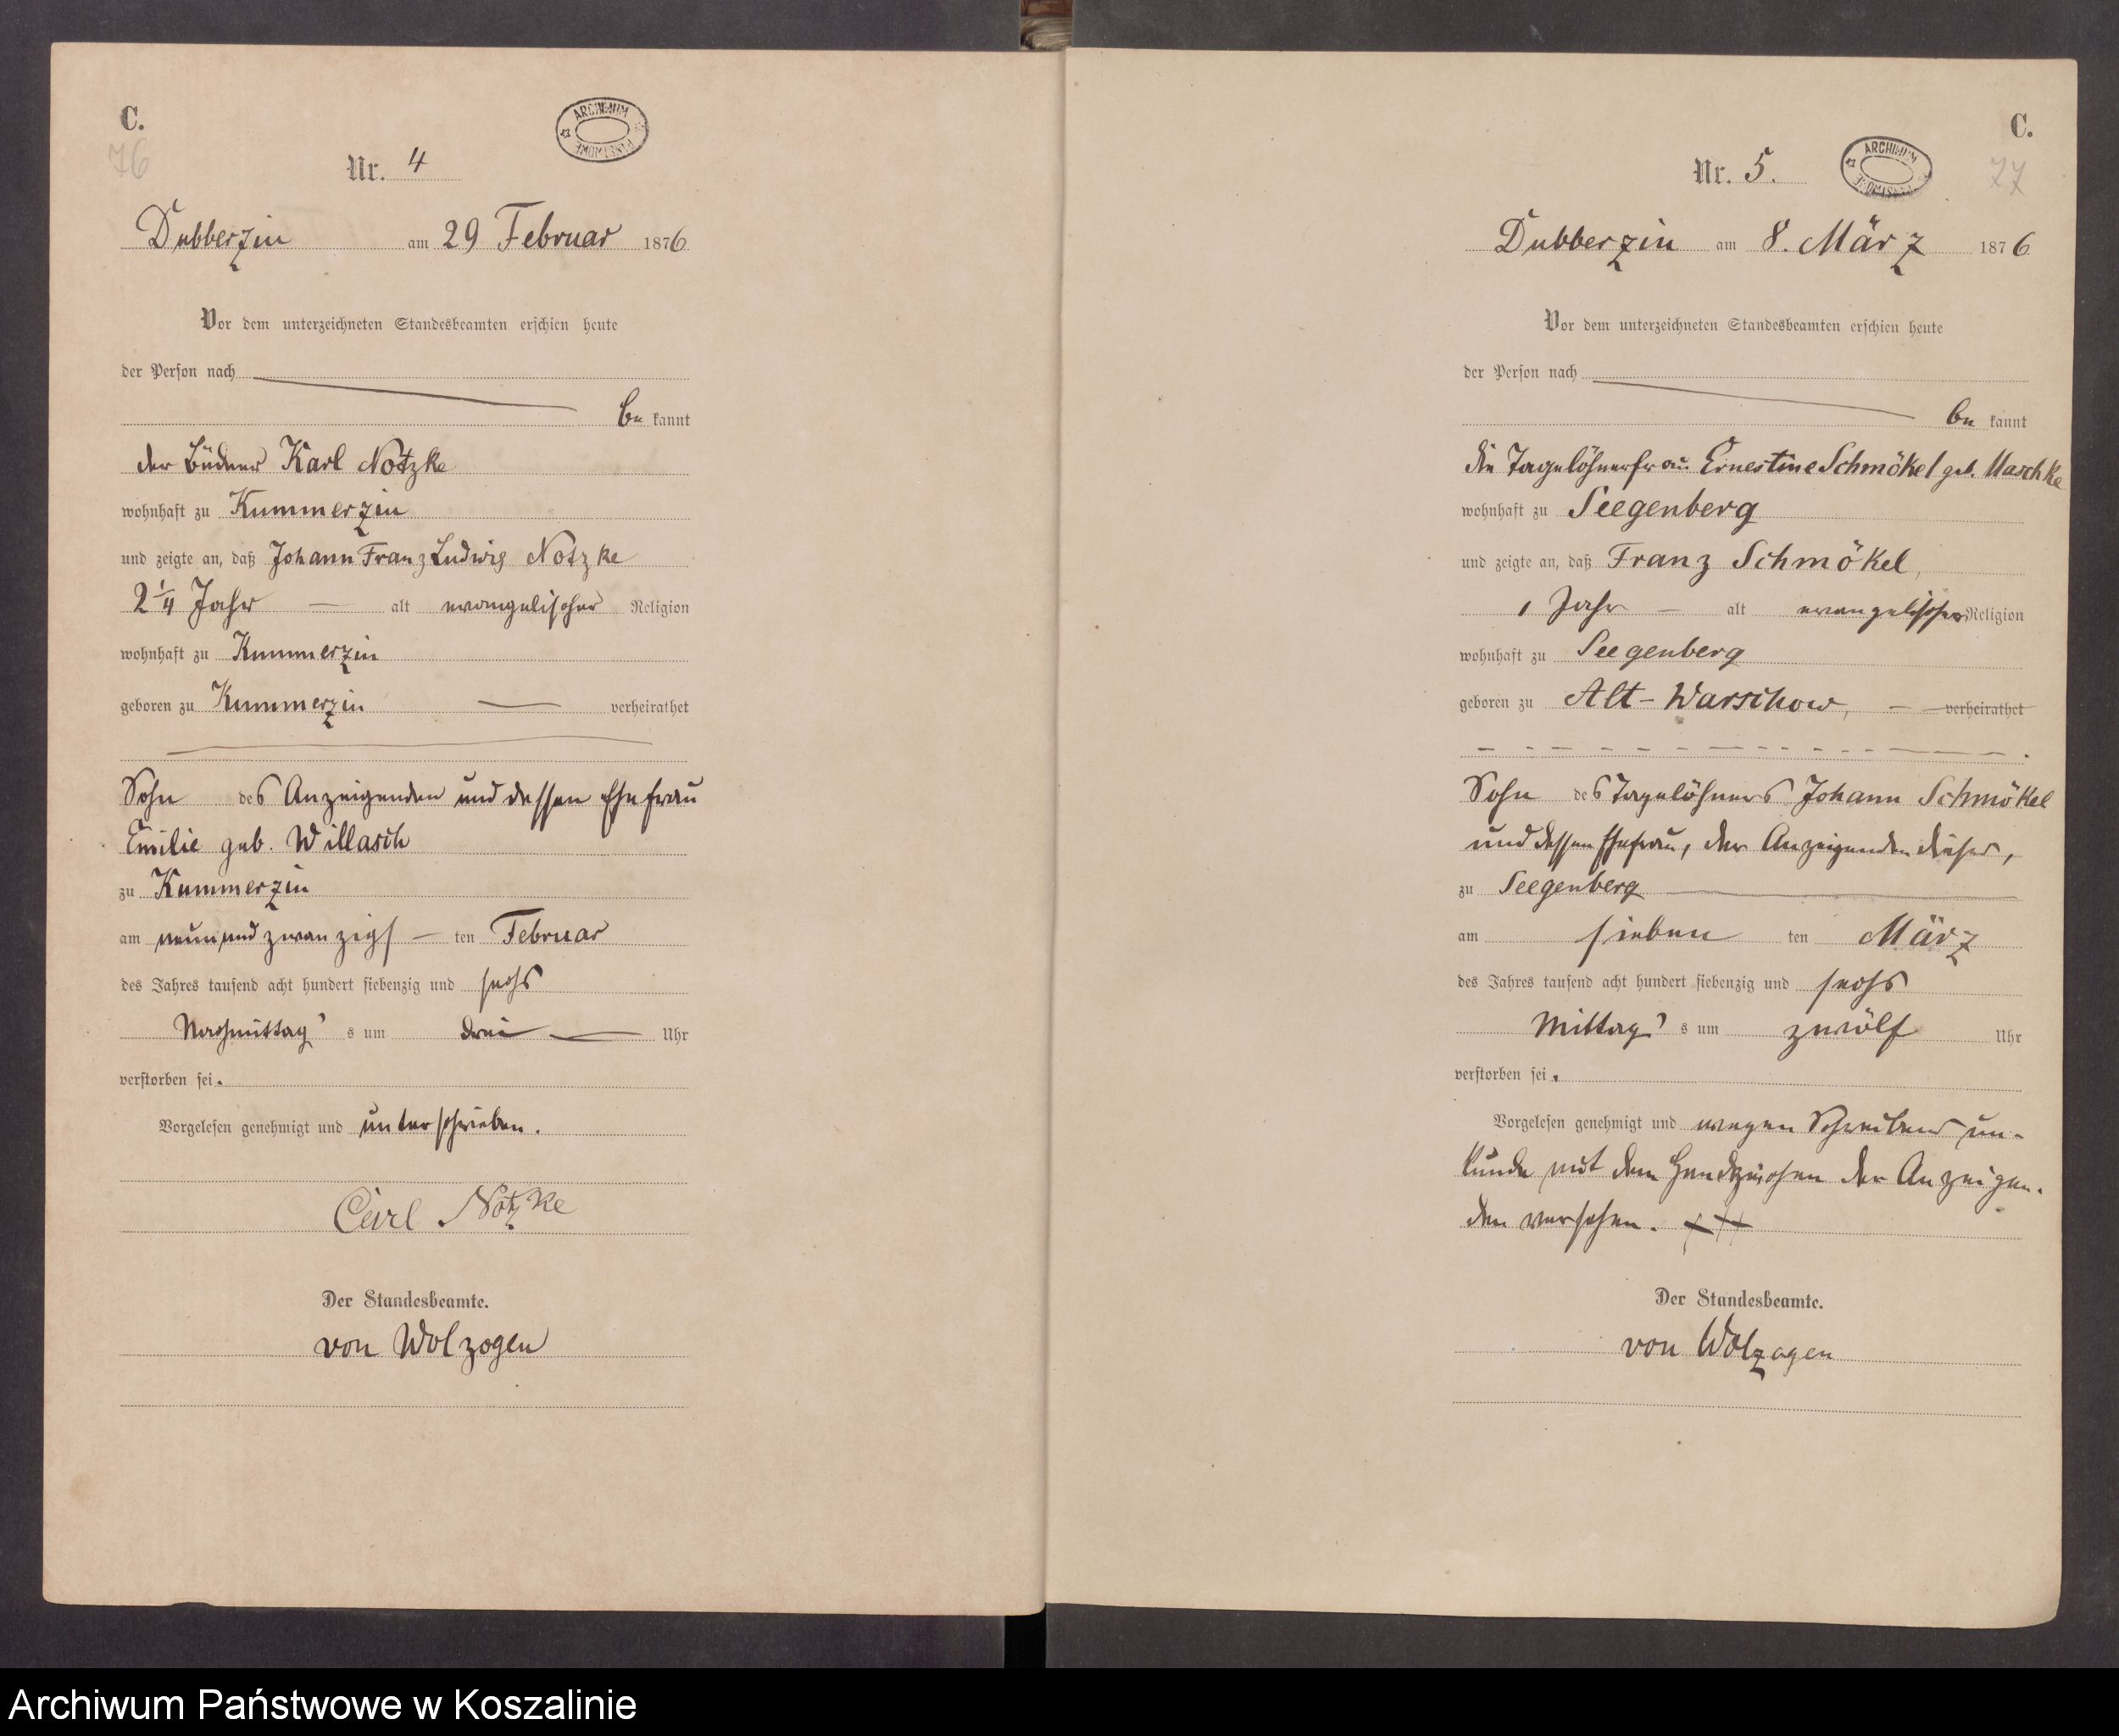 C.
76
ARCHIWUM PAŃSTWOWE
Nr. 4
Dubberzin am 29 Februar 1876
Vor dem unterzeichneten Standesbeamten erschien heute
der Person nach
be kannt
der Büdner Karl Notzke
wohnhaft zu Kummerzin
und zeigte an, daß Johann Franz Ludwig Notzke
2 1/4 Jahr — alt evangelischer Religion
wohnhaft zu Kummerzin
geboren zu Kummerzin — verheirathet
Sohn des Anzeigenden und dessen Ehefrau
Emilie geb. Willasch
zu Kummerzin
am neunundzwanzigs — ten Februar
des Jahres tausend acht hundert siebenzig und sechs
Nachmittag's um drei — Uhr
verstorben sei.
Vorgelesen genehmigt und unterschrieben.
Carl Notzke
Der Standesbeamte.
von Wolzogen
C.
77
ARCHIWUM
Nr. 5.
Dubberzin am 8. März 1876
Vor dem unterzeichneten Standesbeamten erschien heute
der Person nach
be kannt
die Tagelöhnerfrau Ernestine Schmökel geb. Maschke
wohnhaft zu Seegenberg
und zeigte an, daß Franz Schmökel,
1 Jahr — alt evangelischer Religion
wohnhaft zu Seegenberg
geboren zu Alt-Warschow, — verheirathet
Sohn des Tagelöhners Johann Schmökel
und dessen Ehefrau, der Anzeigenden dieser,
zu Seegenberg
am sieben ten März
des Jahres tausend acht hundert siebenzig und sechs
Mittag's um zwölf Uhr
verstorben sei.
Vorgelesen genehmigt und wegen Schreibens un-
kunde mit dem Handzeichen der Anzeigen-
den versehen. +++
Der Standesbeamte.
von Wolzogen
Archiwum Państwowe w Koszalinie